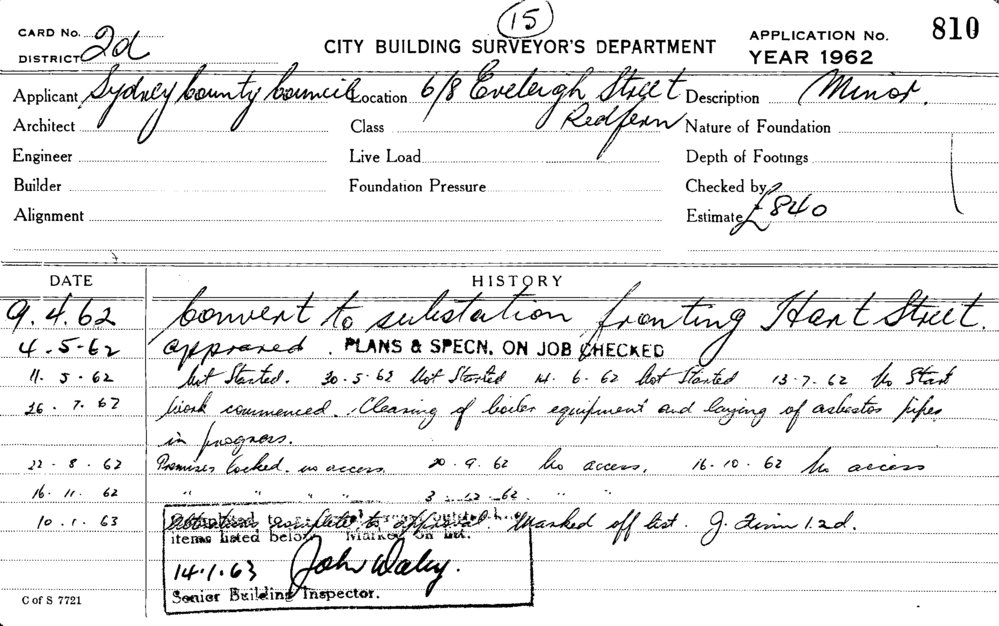 15
CARD No.
DISTRICT 2d
CITY BUILDING SURVEYOR'S DEPARTMENT
APPLICATION No. 810
YEAR 1962
Applicant Sydney County Council Location 6/8 Eveleigh Street Redfern Description Minor.
Architect Class Nature of Foundation
Engineer Live Load Depth of Footings
Builder Foundation Pressure Checked by
Alignment Estimate £840
DATE HISTORY
9.4.62 Convert to substation fronting Hart Street.
4.5-62 approved. PLANS & SPECN. ON JOB CHECKED
11.5.62 Not Started. 30.5.62 Not Started 14.6.62 Not Started 13.7.62 No Start
26.7.62 Work commenced. Clearing of boiler equipment and laying of asbestos pipes
in progress.
22.8.62 Premises locked. no access. 20.9.62 No access. 16.10.62 No access
16.11.62 " " " " 3 12.62. " "
10.1.63 complete to approval. Marked off list. J. 2d.
items listed below Marked on list.
14.1.63 John Daley.
Senior Building Inspector.
C of S 7721